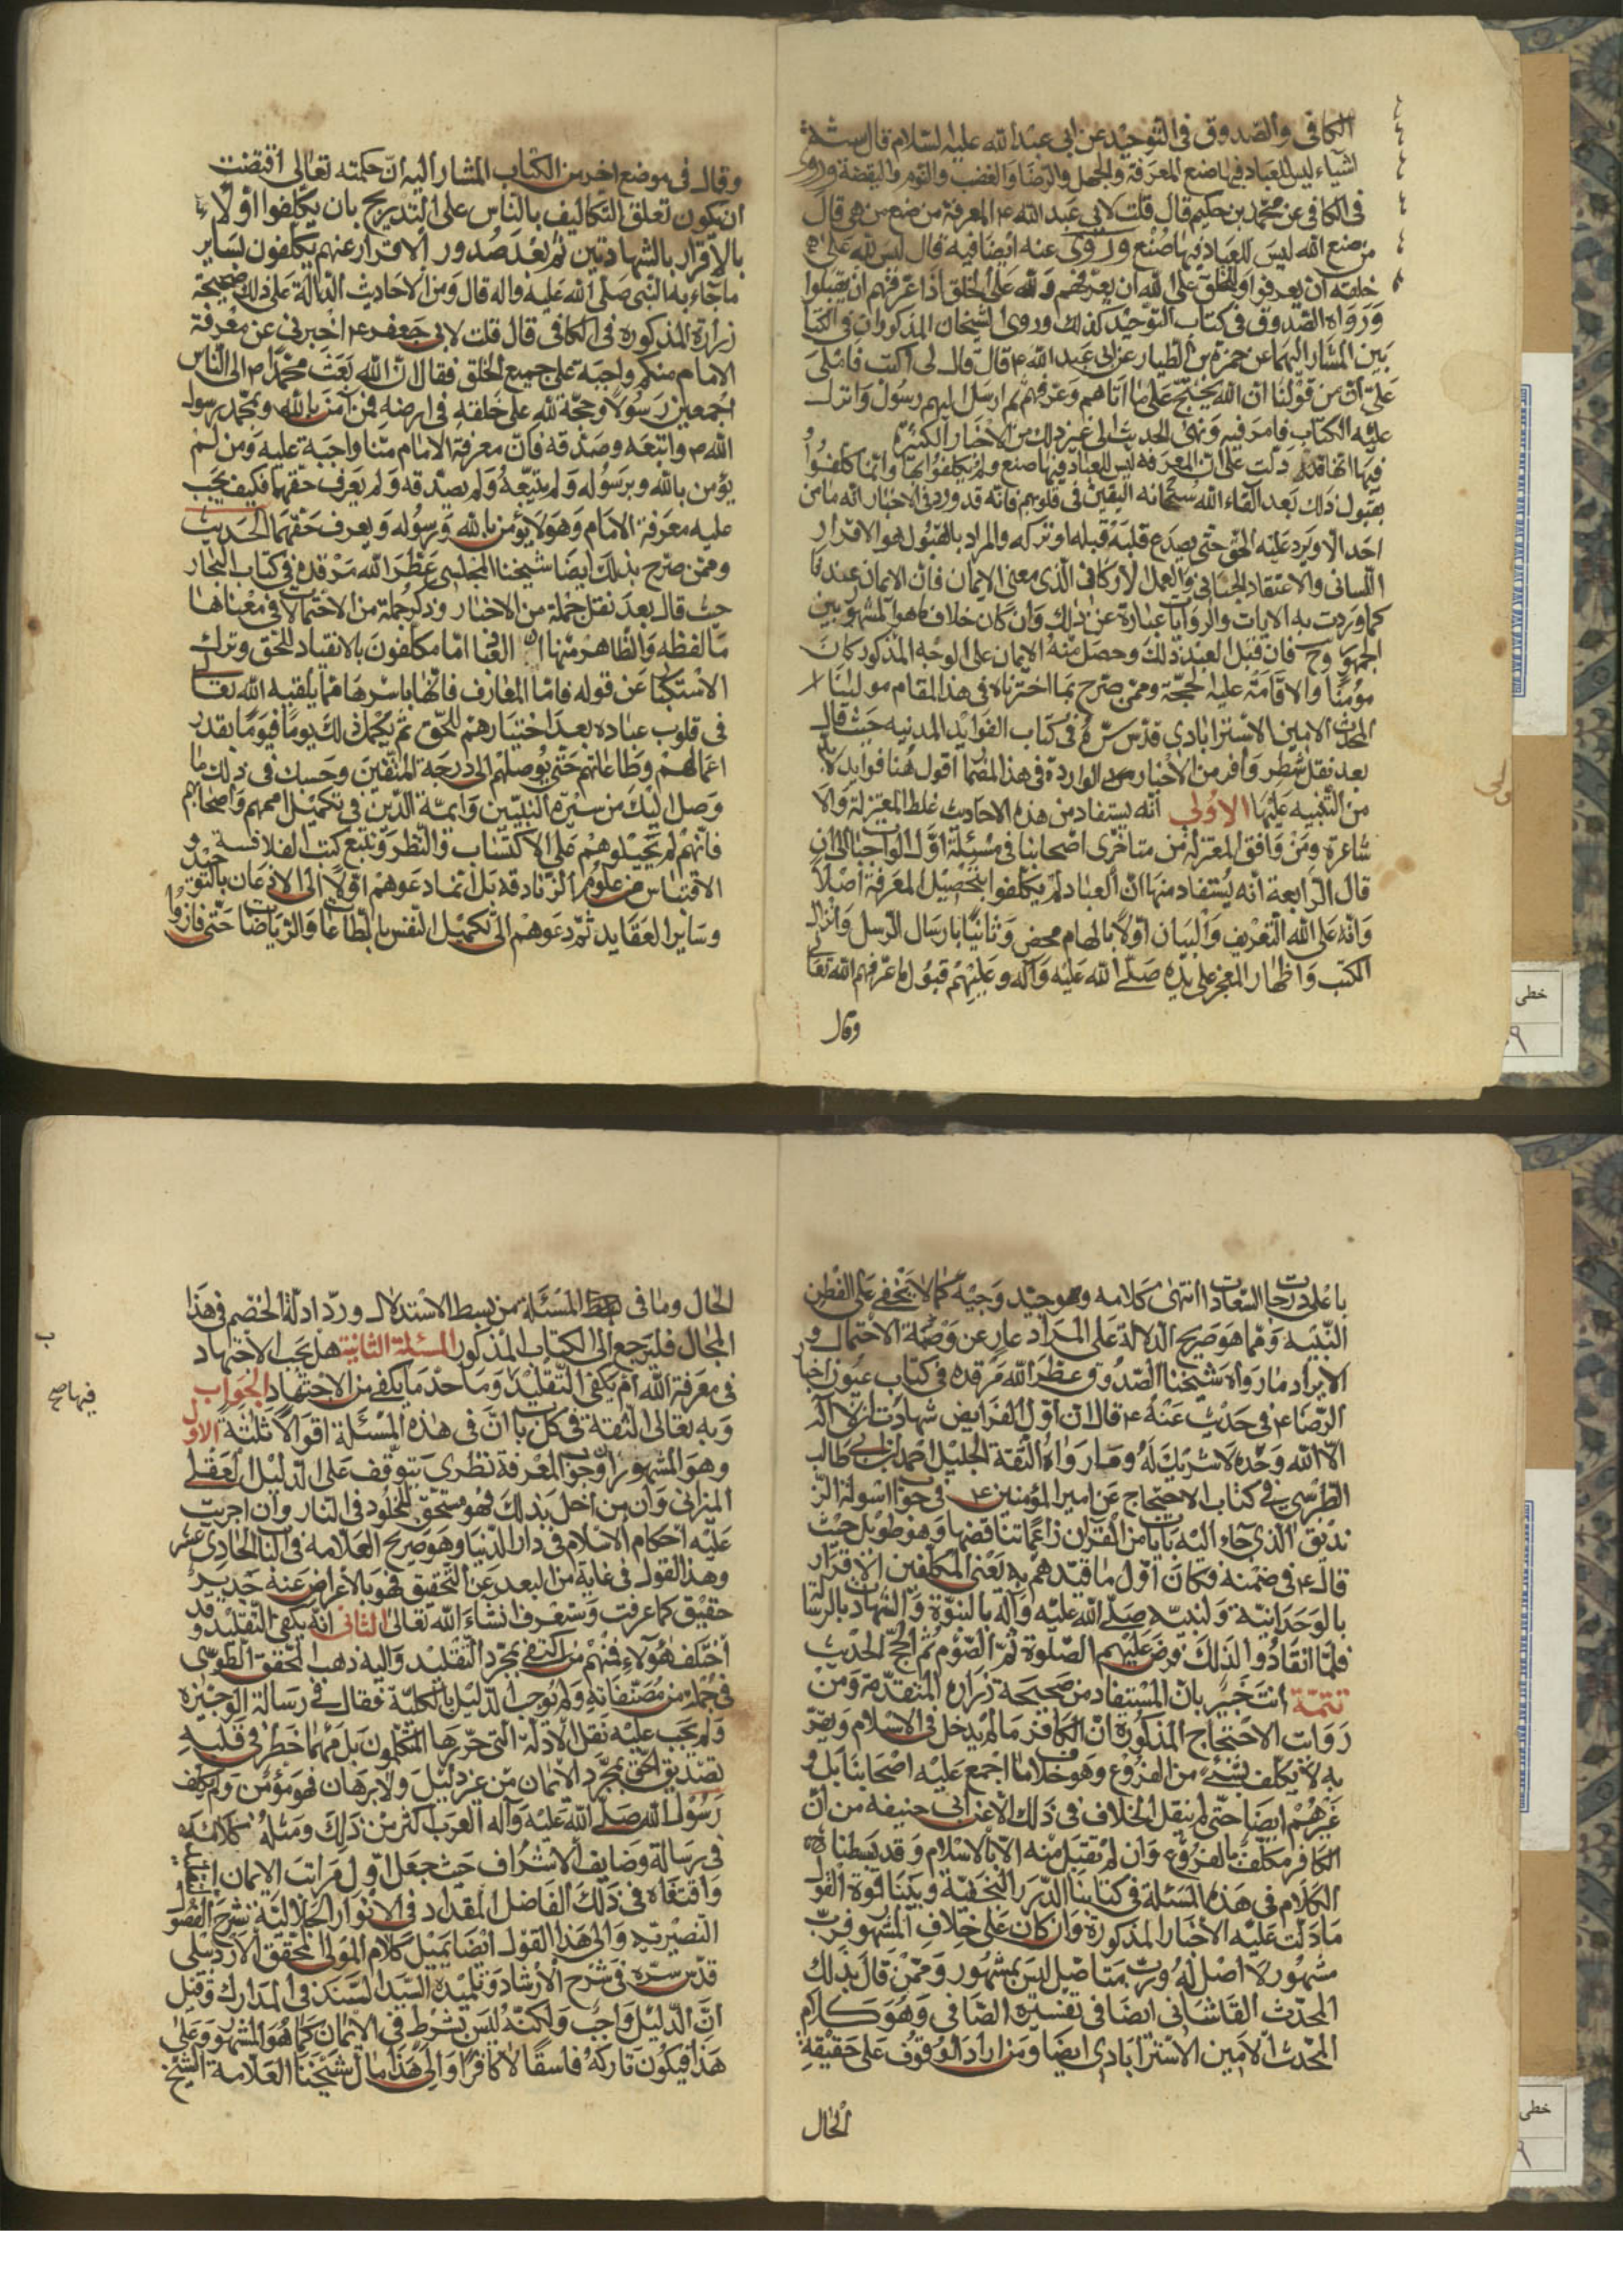 الكافى والصدوق فى التوحيد عن ابى عبد الله عليه السلام قال ستة
اشياء ليس للعباد فيها صنع المعرفة والجهل والرضا والغضب والنوم واليقظة وروى
فى الكافى عن محمد بن حكيم قال قلت لابى عبد الله ع المعرفة من صنع من هى قال
من صنع الله ليس للعباد فيها صنع وروى عنه ايضا فيه قال ليس لله على
خلقه ان يعرفوا وللخلق على الله ان يعرفهم ولله على الخلق اذا عرفهم ان يقبلوا
ورواه الصدوق فى كتاب التوحيد كذلك وروى الشيخان المذكوران فى الكتا
بين المشار اليهما عن حمزة بن الطيار عن ابى عبد الله ع قال قال لى اكتب فاملى
على ان من قولنا ان الله يحتج على ما اتاهم وعرفهم ثم ارسل اليهم رسول وانزل
عليه الكتاب فامر فيه ونهى الحديث الى غير ذلك من الاخبار الكثيرة
فيها انها قد دلت على ان المعرفة ليس للعباد فيها صنع ولم يكلفوا بها وانما كلفوا
بقبول ذلك بعد القاء الله سبحانه اليقين فى قلوبهم فانه قد ورد فى الاخبار انه ما من
احد الا ويرد عليه الحق حتى يصدع قلبه قبله او تركه والمراد بالقبول هو الاقرار
اللسانى والاعتقاد الجنانى والعمل الاركانى الذى معنى الايمان فان الايمان عندنا
كما وردت به الايات والروايات عبارة عن ذلك وان كان خلاف ما هو المشهور بين
الجمهور وح فان قبل العبد ذلك وحصل منه الايمان على الوجه المذكور كان
مؤمنا والا قامت عليه الحجة وممن صرح بما اخترناه فى هذا المقام مولانا
المحدث الامين الاسترابادى قدس سره فى كتاب الفوايد المدنيه حيث قال
بعد نقل شطر وافر من الاخبار الواردة فى هذا المضمار اقول هنا فوايد لا بد
من التنبيه عليها الاولى انه يستفاد من هذه الاحاديث غلط المعتزلة والا
شاعرة ومن وافق المعتزلة من متاخرى اصحابنا فى مسئلة اول الواجبات الى ان
قال الرابعة انه يستفاد منها ان العباد لم يكلفوا بتحصيل المعرفة اصلا
وانه على الله التعريف والبيان اولا بالهام محض وثانيا بارسال الرسل وانزال
الكتب واظهار المعجز على يده صلى الله عليه وآله وعليهم قبول ما عرفهم الله تعالى
وقال
وقال فى موضع اخر من الكتاب المشار اليه ان حكمته تعالى اقتضت
ان يكون تعلق التكاليف بالناس على التدريج بان يكلفوا اولا
بالاقرار بالشهادتين ثم بعد صدور الاقرار عنهم يكلفون بساير
ما جاء به النبى صلى الله عليه واله قال ومن الاحاديث الدالة على ذلك صحيحة
زرارة المذكورة فى الكافى قال قلت لابى جعفر ع اخبرنى عن معرفة
الامام منكم واجبة على جميع الخلق فقال ان الله بعث محمدا ص الى الناس
اجمعين رسولا وحجة لله على خلقه فى ارضه فمن آمن بالله وبمحمد رسول
الله ص واتبعه وصدقه فان معرفة الامام منا واجبة عليه ومن لم
يؤمن بالله وبرسوله ولم يتبعه ولم يصدقه ولم يعرف حقهما فكيف يجب
عليه معرفة الامام وهو لا يؤمن بالله ورسوله ويعرف حقهما الحديث
وممن صرح بذلك ايضا شيخنا المجلسى عطر الله مرقده فى كتاب البحار
حيث قال بعد نقل جملة من الاخبار وذكر جملة من الاحتمالات فى معناها
ما لفظه والظاهر منها ان العباد انما مكلفون بالانقياد للحق وترك
الاستكبار عن قوله فاما المعارف فانها باسرها مما يلقيه الله تعالى
فى قلوب عباده بعد اختيارهم للحق ثم يكمل ذلك يوما فيوما بقدر
اعمالهم وطاعاتهم حتى يوصلهم الى درجة المتقين وحسبك فى ذلك ما
وصل اليك من سيرة النبيين وائمة الدين فى تكميل اممهم واصحابهم
فانهم لم يحيلوهم على الاكتساب والنظر وتتبع كتب الفلاسفة و
الاقتباس من علوم الزنادقة بل انما دعوهم اولا الى الاذعان بالتوحيد
وساير العقايد ثم دعوهم الى تكميل النفس بالطاعات والرياضات حتى فازوا
باعلى درجات السعادات انتهى كلامه وهو جيد وجيه كما لا يخفى على الفطن
النبيه ومما هو صريح الدلالة على المراد عار عن وصمة الاحتمال و
الايراد ما رواه شيخنا الصدوق عطر الله مرقده فى كتاب عيون اخبار
الرضا ع فى حديث عنه ع قال ان اول الفرايض شهادة ان لا اله
الا الله وحده لا شريك له وما رواه الثقة الجليل احمد بن ابى طالب
الطبرسى فى كتاب الاحتجاج عن امير المؤمنين ع فى جواب اسولة الز
نديق الذى جاء اليه بايات من القران زاعما تناقضها وهو طويل حيث
قال ع فى ضمنه فكان اول ما قيدهم به يعنى المكلفين الاقرار
بالوحدانية ولنبيه صلى الله عليه وآله بالنبوة والشهادة بالرسالة
فلما انقادوا لذلك فرض عليهم الصلوة ثم الصوم ثم الحج الحديث
تتمة انت خبير بان المستفاد من صحيحة زرارة المتقدمة ومن
روايت الاحتجاج المذكورة ان الكافر ما لم يدخل فى الاسلام ويقر
به لا يكلف بشئ من الفروع وهو خلاف ما اجمع عليه اصحابنا بل و
غيرهم ايضا حتى لم ينقل الخلاف فى ذلك الا عن ابى حنيفه من ان
الكافر مكلف بالفروع وان لم تقبل منه الا بالاسلام وقد بسطنا
الكلام فى هذه المسئلة فى كتابنا الدرر النجفية وبينا قوة القول
ما دلت عليه الاخبار المذكورة وان كان على خلاف المشهور فرب
مشهور لا اصل له ورب متاصل ليس بمشهور وممن قال بذلك
المحدث القاشانى ايضا فى تفسيره الصافى وهو كلام
المحدث الامين الاسترابادى ايضا ومن اراد الوقوف على حقيقة
الحال
الحال وما فى المسئلة من بسط الاستدلال ورد ادلة الخصم فى هذا
المجال فليرجع الى الكتاب المذكور المسئلة الثانية هل يجب الاجتهاد
فى معرفة الله ام يكفى التقليد وما حد ما يكفى من الاجتهاد الجواب
وبه تعالى الثقة فى كل باب ان فى هذه المسئلة اقوالا ثلثة الاول
وهو المشهور ان وجوب المعرفة نظرى يتوقف على الدليل العقلى
الميزانى وان من اخل بذلك فهو مستحق للخلود فى النار وان اجريت
عليه احكام الاسلام فى دار الدنيا وهو صريح العلامه فى الباب الحادى عشر
وهذا القول فى غاية من البعد عن التحقيق فهو بالاعراض عنه جدير
حقيق كما عرفت وستعرف انشاء الله تعالى الثانى انه يكفى التقليد وقد
اختلف هؤلاء فمنهم من اكتفى بمجرد التقليد واليه ذهب المحقق الطوسى
فى جملة من مصنفاته ولم يوجب الدليل بالكلية فقال فى رسالة الوجيزة
ولم يجب عليه نقل الادلة التى حررها المتكلمون بل مهما خطر فى قلبه
تصديق الحق بمجرد الايمان من غير دليل ولا برهان فهو مؤمن ولم يكلف
رسول الله صلى الله عليه وآله العرب اكثر من ذلك ومثله كلامه
فى رسالة وصايف الاشراف حيث جعل اول مراتب الايمان
واقتفاه فى ذلك الفاضل المقداد فى الانوار الجلالية شرح الفصول
النصيرية والى هذا القول ايضا يميل كلام المولى المحقق الاردبيلى
قدس سره فى شرح الارشاد وتلميذه السيد السند فى المدارك وقيل
ان الدليل واجب ولكنه ليس بشرط فى الايمان كما هو المشهور وعلى
هذا فيكون تاركه فاسقا لا كافرا والى هذا مال شيخنا العلامة الشيخ
ب
خطى
خطى